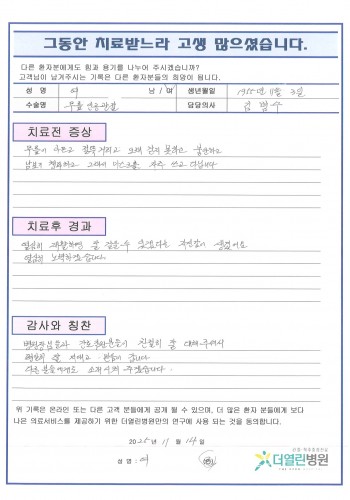 그동안 치료받느라 고생 많으셨습니다.
다른 환자분에게도 힘과 용기를 나누어 주시겠습니까?
고객님이 남겨주시는 기록은 다른 환자분들의 희망이 됩니다.
성 명 여 남 / 여 생년월일 1955년 11월
수술명 무릎 인공관절 담당의사 김
치료전 증상
무릎이 아프고 절뚝거리고 오래 걷지 못하고 불안하고
자주 쓰고 다닙니다
치료후 경과
열심히 재활하면 잘 걸을수 있겠다는 자신감이 생겼어요
열심히 노력하겠습니다
감사와 칭찬
친절히 잘 대해주셔서
다른 분들에게도 소개시켜 주겠습니다.
위 기록은 온라인 또는 다른 고객 분들에게 공개 될 수 있으며, 더 많은 환자 분들에게 보다
나은 의료서비스를 제공하기 위한 더열린병원만의 연구에 사용 되는 것을 동의합니다.
2025년 11월 14일
성 명 : 여
더열린병원
THE OPEN HOSPITAL